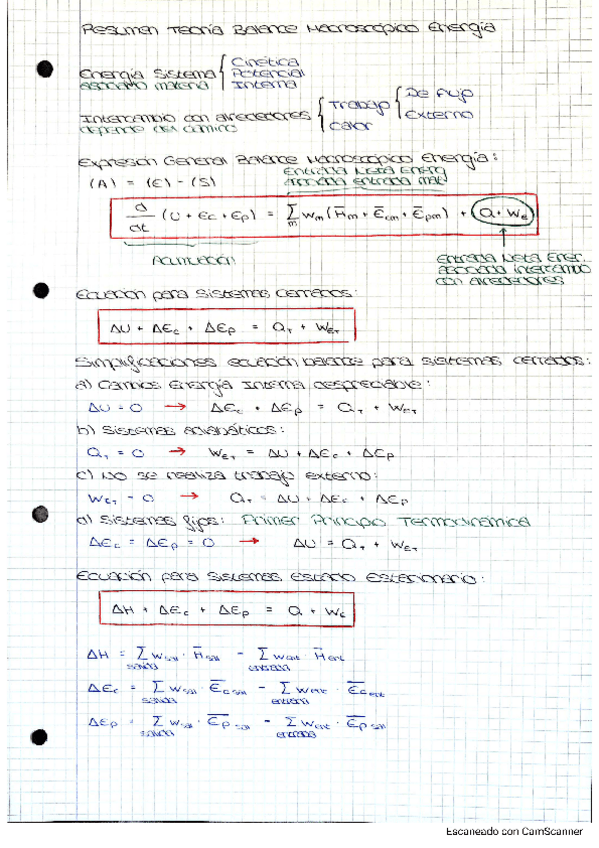 Resumen Teoría Balance Macroscópico Energía
Energía Sistema { Cinética
Potencial
asociado materia Interna
Intercambio con alrededores { Trabajo { De flujo
Externo
depende del camino Calor
Expresión General Balance Macroscópico Energía:
Entrada Neta Energ
asociada entrada mat
(A) = (E) - (S)
d/dt (U + Ec + Ep) = Σm wm (H̄m + Ēcm + Ēpm) + Q + We
Acumulación
Entrada Neta Ener.
asociada intercambio
con alrededores
Ecuación para sistemas cerrados:
ΔU + ΔEc + ΔEp = QT + WET
Simplificaciones ecuación balance para sistemas cerrados:
a) Cambios Energía Interna despreciable:
ΔU = 0 → ΔEc + ΔEp = QT + WET
b) Sistemas adiabáticos:
QT = 0 → WET = ΔU + ΔEc + ΔEp
c) No se realiza trabajo externo:
WET = 0 → QT = ΔU + ΔEc + ΔEp
d) Sistemas fijos: Primer Principio Termodinámica
ΔEc = ΔEp = 0 → ΔU = QT + WET
Ecuación para sistemas estado estacionario:
ΔH + ΔEc + ΔEp = Q + We
ΔH = Σ wsal · H̄sal - Σ went · H̄ent
salida entrada
ΔEc = Σ wsal · Ēc sal - Σ went · Ēc ent
salida entrada
ΔEp = Σ wsal · Ēp sal - Σ went · Ēp sal
salida entrada
Escaneado con CamScanner